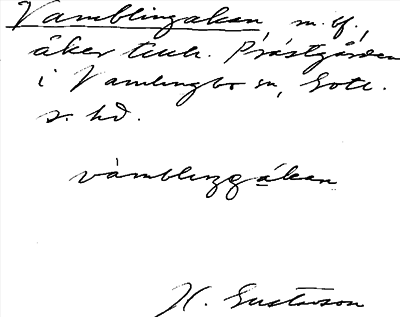 Vamblingakan, m. bf.,
åker tillh. Prästgården
i Vamlingbo sn, Gotl.
s. hd.
vàmblıŋgákan
H. Gustavson